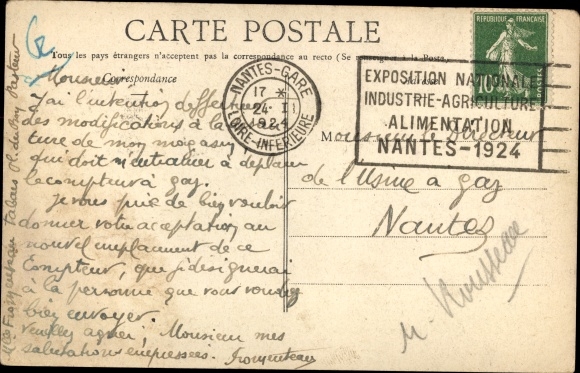 CARTE POSTALE
Tous les pays étrangers n'acceptent pas la correspondance au recto (Se renseigner à la Poste
Correspondance
RÉPUBLIQUE FRANÇAISE
10
POSTES
NANTES-GARE
17 *
24-I
1924
LOIRE-INFÉRIEURE
EXPOSITION NATIONALE
INDUSTRIE-AGRICULTURE
ALIMENTATION
NANTES-1924
Monsieur,
J'ai l'intention d'effectuer
des modifications à la
ture de mon magasin
qui doit m'entraîner à déplacer
le compteur à gaz.
Je vous prie de bien vouloir
donner votre acceptation au
nouvel emplacement de ce
compteur, que je désignerai
à la personne que vous voudrez
bien envoyer.
Veuillez agréer, Monsieur mes
salutations empressées. Fromenteau
Monsieur le Directeur
de l'Usine a gaz
Nantes
M. Rousseau
Fromenteau tabacs Pl. du Bon Pasteur